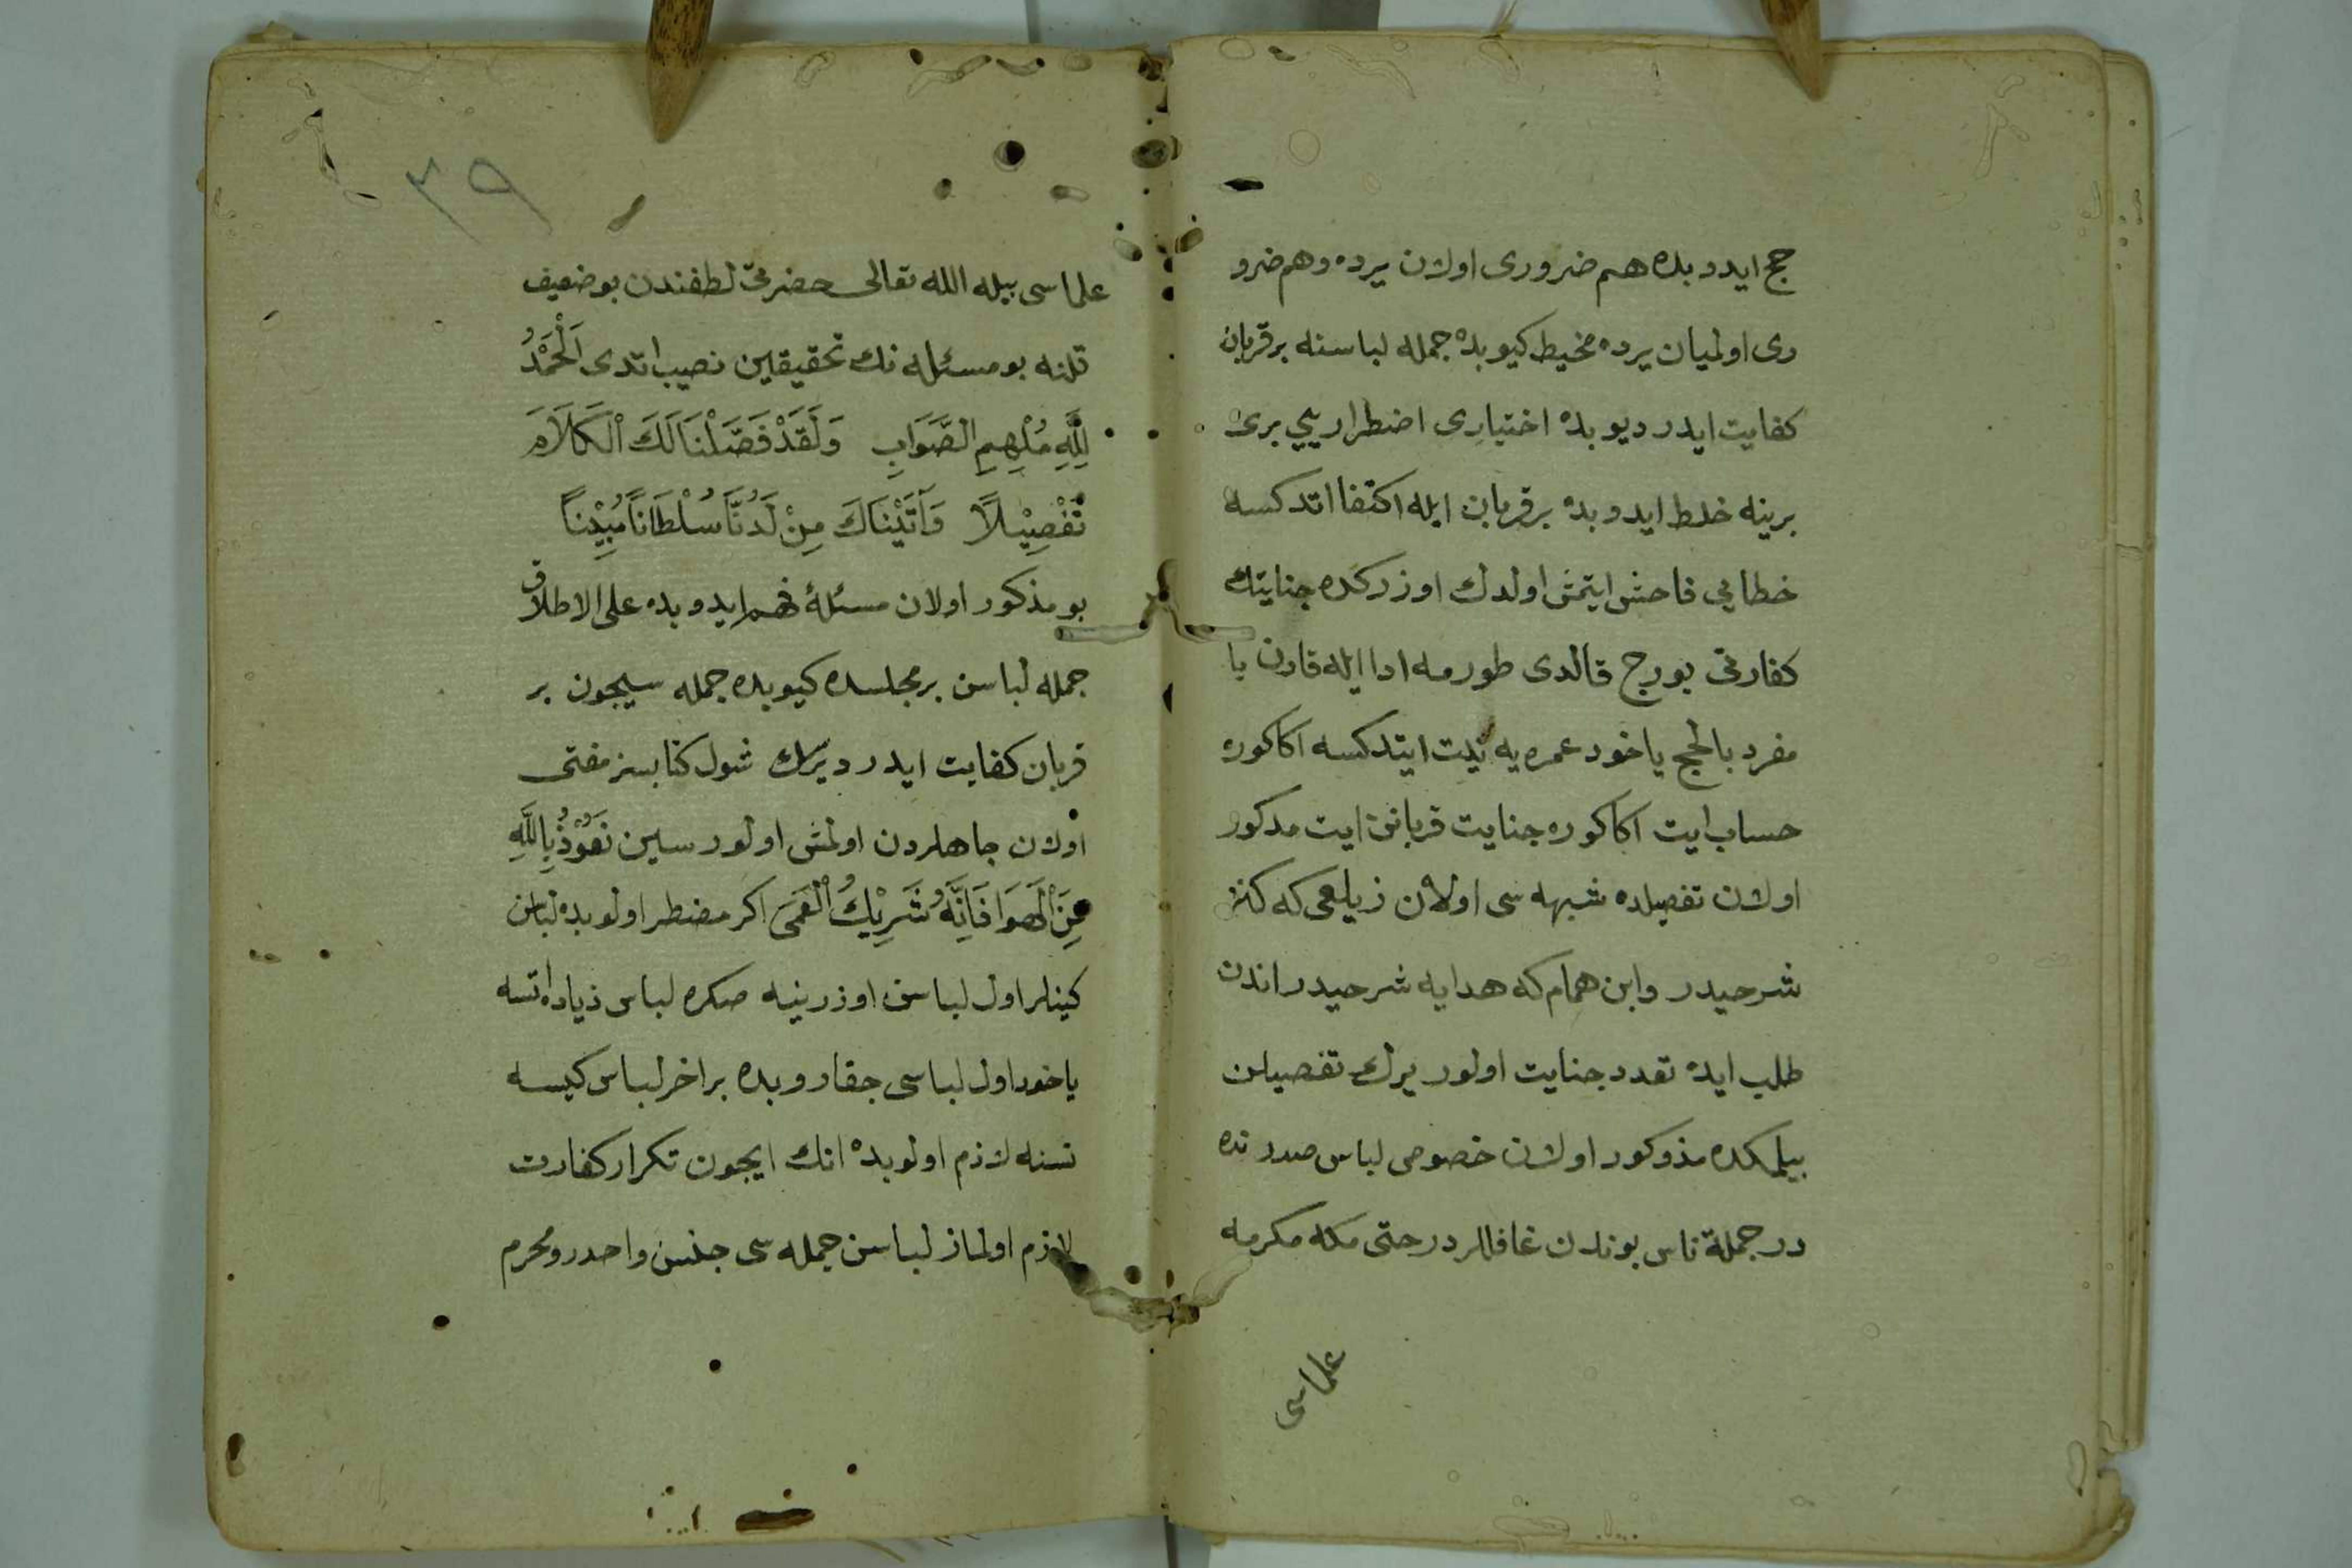 حج ایدوبده هم ضروری اولان یرده وهم ضرو
ری اولمیان یرده مخیط کیوبده جمله لباسنه بر قربان
کفایت ایدر دیوبده اختیاری اضطراریی بری
برینه خلط ایدوبده بر قربان ایله اکتفا اتد کسه
خطایی فاحش ایتمش اولدك اوزرکده جنایتك
کفارتی بورج قالدی طورمه ادا ایله قارن یا
مفرد بالحج یاخود عمره یه نیت ایتد کسه اکا کوره
حساب ایت اکا کوره جنایت قربانی ایت مدکور
اولان تفصیلده شبهه سی اولان زیلعی که کنز
شرحیدر وابن همام که هدایه شرحیدر اندن
طلب ایده تعدد جنایت اولور یرك تفصیلن
بیلمکده مذوکور اولان خصوصی لباس صددنده
در جملة ناس بوندن غافللردر حتی مکه مکرمه
علماسی
٣٩
علماسی بیله الله تعالی حضرتی لطفندن بو ضعیف
قلنه بو مسئله نك تحقیقین نصیب اتدی اَلْحَمْدُ
لِلّٰهِ مُلْهِمِ الصَّوَابِ وَلَقَدْ فَصَّلْنَا لَكَ الْكَلَامَ
تَفْصِيْلًا وَآتَيْنَاكَ مِنْ لَدُنَّا سُلْطَانًا مُبِيْنًا
بو مذکور اولان مسئلهٔ فهم ایدوبده علی الاطلاق
جمله لباسن بر مجلسده کیوبده جمله سیچون بر
قربان کفایت ایدر دیرسك شول کتابسز مفتی
اولان جاهلردن اولمش اولورسین نَعُوْذُ بِاللّٰهِ
مِنَ الْهَوَا فَاِنَّهُ شَرِيْكُ الْعَمَى اکر مضطر اولوبده لباسن
کینلر اول لباسی اوزرینه صکره لباس زیاده اتسه
یاخود اول لباسی جقاروبده بر اخر لباس کیسه
نسنه لازم اولوبده انك ایچون تکرار کفارت
لازم اولماز لباسن جمله سی جنس واحددر ومحرم